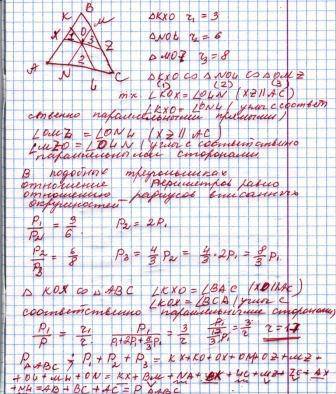 B
K
M
X
O
1
3
Z
2
A
N
Ч
C
△KXO r₁ = 3
△NOЧ r₂ = 6
△MOZ r₃ = 8
△KXO ∽ △NOЧ ∽ △OMZ
(1) (2) (3)
тк ∠KOX = ∠OЧN (XZ||AC)
∠KXO = ∠ONЧ (углы с соответ
ственно параллельными прямыми)
∠OMZ = ∠ONЧ (XZ || AC)
∠MZO = ∠OЧN (углы с соответственно
параллельными сторонами
В подобных треугольниках
отношение периметров равно
отношению радиусов вписанных
окружностей
P₁/P₂ = 3/6 P₂ = 2P₁
P₂/P₃ = 6/8 P₃ = 4/3 P₂ = 4/3 · 2P₁ = 8/3 P₁
△ KOX ∽ △ABC ∠KXO = ∠BAC (XO||AC)
∠KOX = ∠BCA (углы с
соответственно параллельными сторонами)
P₁/P = r₁/r P₁/(P₁+2P₁+8/3P₁) = 3/r = 3/r r = 17
P△ABC = P₁ + P₂ + P₃ = KX + KO + OX + OM + OZ + MZ +
+ OЧ + NЧ + ON = KX + BM + NA + BK + ЧC + MZ + ZC + AX
+ NЧ = AB + BC + AC = P△ABC